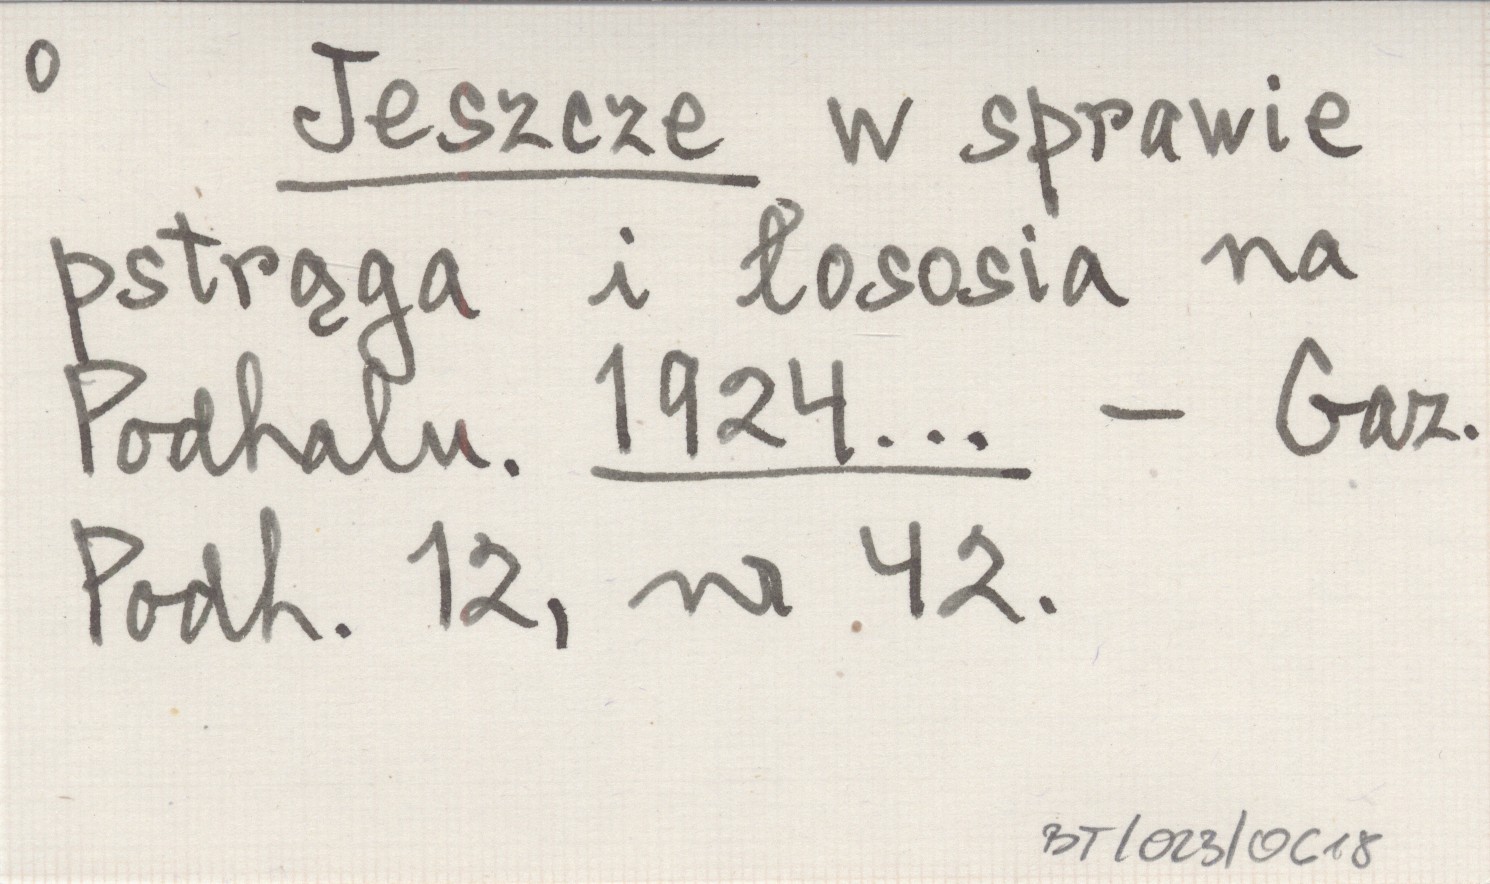 o Jeszcze w sprawie
pstrąga i łososia na
Podhalu. 1924... – Gaz.
Podh. 12, nr 42.
BT/023/OC18